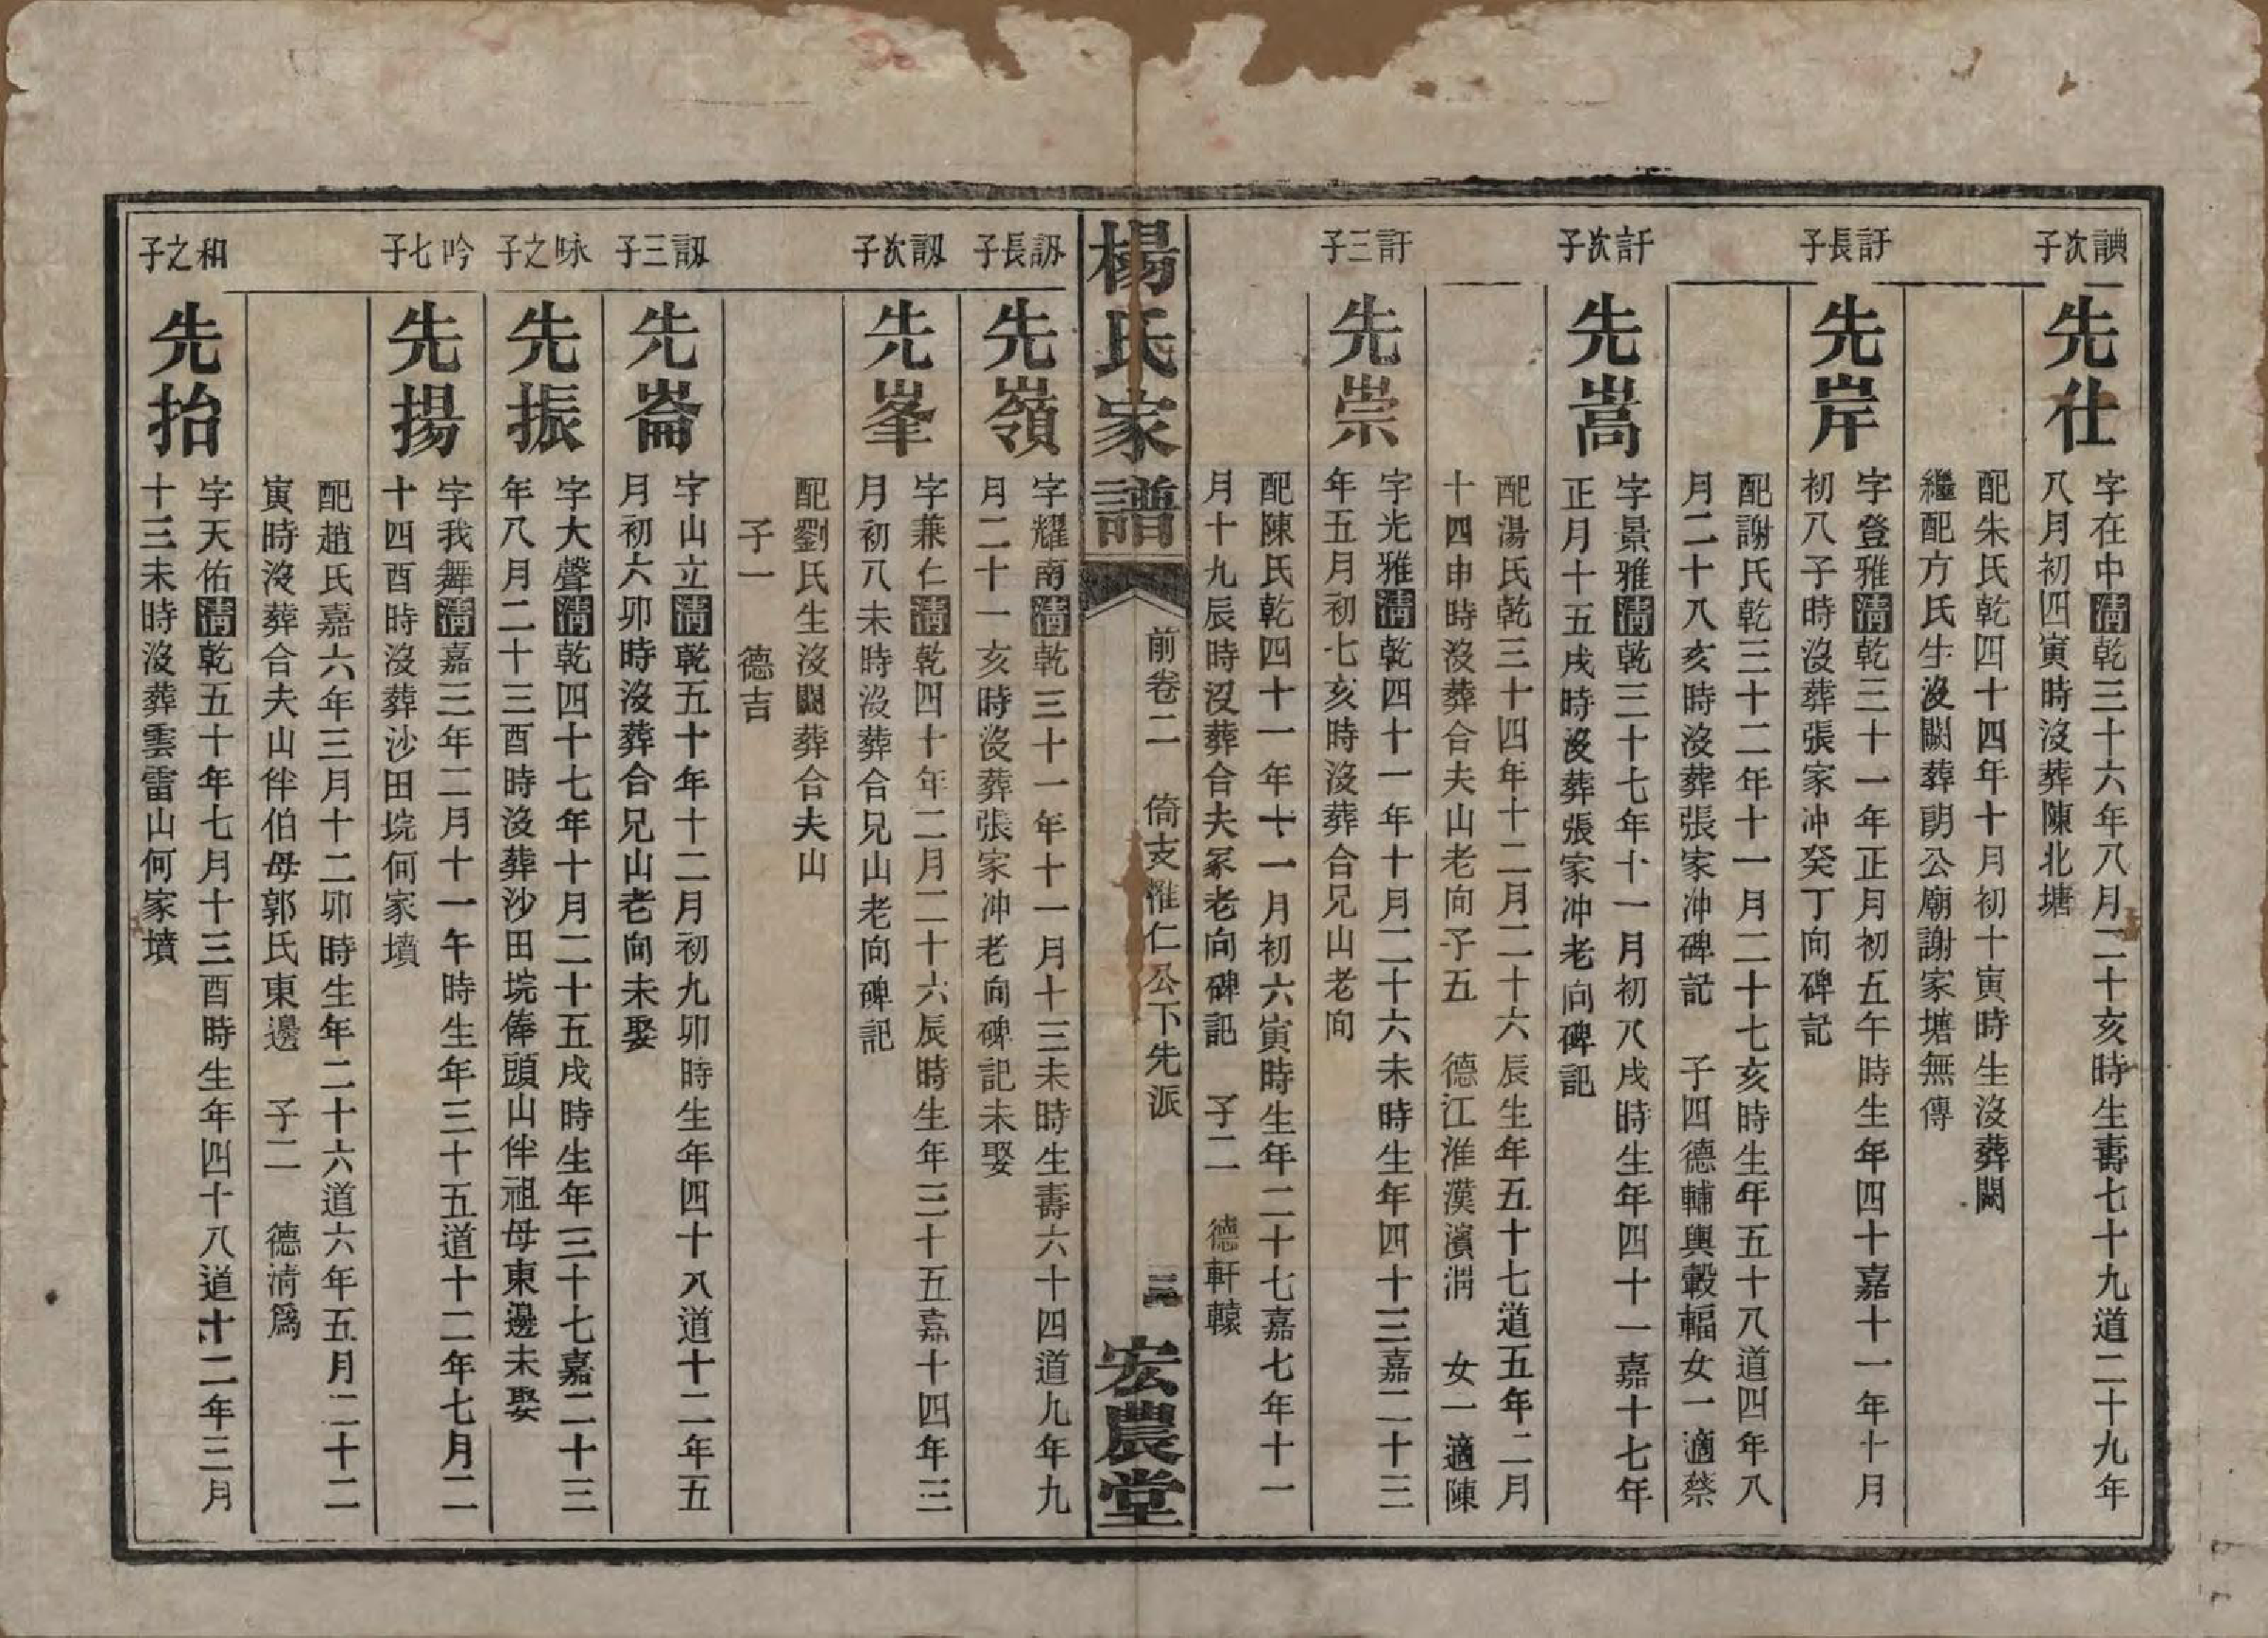 諌次子
先仕
字在中清乾三十六年八月二十亥時生壽七十九道二十九年
八月初四寅時沒葬陳北塘
配朱氏乾四十四年十月初十寅時生沒葬闕
繼配方氏生沒闕葬朗公廟謝家塘無傳
訐長子
先岸
字登雅清乾三十一年正月初五午時生年四十嘉十一年十月
初八子時沒葬張家冲癸丁向碑記
配謝氏乾三十二年十一月二十七亥時生年五十八道四年八
月二十八亥時沒葬張家冲碑記 子四德輔輿轂輻女一適蔡
訐次子
先嵩
字景雅清乾三十七年十一月初八戌時生年四十一嘉十七年
正月十五戌時沒葬張家冲老向碑記
配湯氏乾三十四年十二月二十六辰生年五十七道五年二月
十四申時沒葬合夫山老向子五 德江淮漢濱渭 女一適陳
訐三子
先崇
字光雅清乾四十一年十月二十六未時生年四十三嘉二十三
年五月初七亥時沒葬合兄山老向
配陳氏乾四十一年十一月初六寅時生年二十七嘉七年十一
月十九辰時沒葬合夫冢老向碑記 子二 德軒轅
楊氏家譜
前卷二 倚支惟仁公下先派
三
宏農堂
訒長子
先嶺
字耀南清乾三十一年十一月十三未時生壽六十四道九年九
月二十一亥時沒葬張家冲老向碑記未娶
訒次子
先峯
字兼仁清乾四十年二月二十六辰時生年三十五嘉十四年三
月初八未時沒葬合兄山老向碑記
配劉氏生沒闕葬合夫山
子一 德吉
訒三子
先崙
字山立清乾五十年十二月初九卯時生年四十八道十二年五
月初六卯時沒葬合兄山老向未娶
咏之子
先振
字大聲清乾四十七年十月二十五戌時生年三十七嘉二十三
年八月二十三酉時沒葬沙田垸俸頭山伴祖母東邊未娶
吟七子
先揚
字我舞清嘉三年二月十一午時生年三十五道十二年七月二
十四酉時沒葬沙田垸何家墳
配趙氏嘉六年三月十二卯時生年二十六道六年五月二十二
寅時沒葬合夫山伴伯母郭氏東邊 子二 德淸爲
和之子
先抬
字天佑清乾五十年七月十三酉時生年四十八道十二年三月
十三未時沒葬雲雷山何家墳